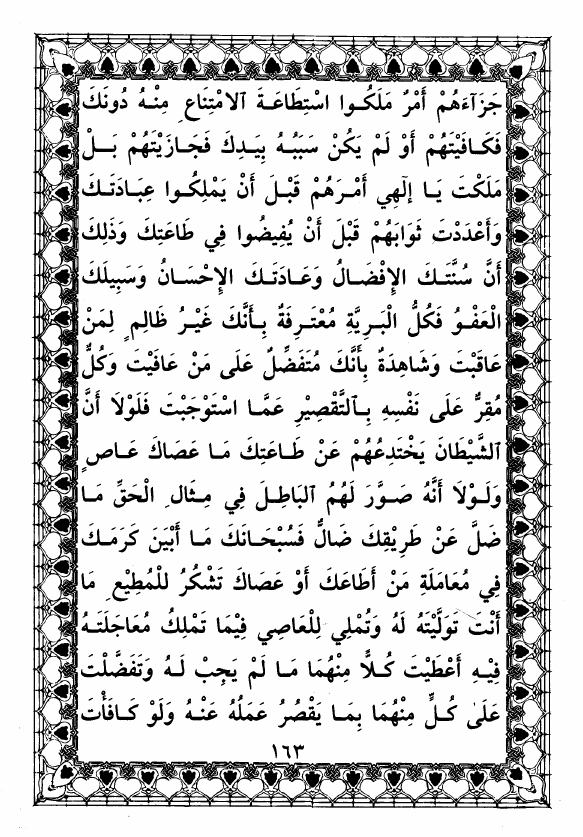 جَزَآءَهُمْ أَمْرٌ مَلَكُوا اسْتِطَاعَةَ الامْتِنَاعِ مِنْهُ دُونَكَ
فَكَافَيْتَهُمْ أَوْ لَمْ يَكُنْ سَبَبُهُ بِيَدِكَ فَجَازَيْتَهُمْ بَلْ
مَلَكْتَ يَا إلَهِي أَمْرَهُمْ قَبْلَ أَنْ يَمْلِكُوا عِبَادَتَكَ
وَأَعْدَدْتَ ثَوَابَهُمْ قَبْلَ أَنْ يُفِيضُوا فِي طَاعَتِكَ وَذَلِكَ
أَنَّ سُنَّتَكَ الإِفْضَالُ وَعَادَتَكَ الإِحْسَانُ وَسَبِيلَكَ
الْعَفْوُ فَكُلُّ الْبَرِيَّةِ مُعْتَرِفَةٌ بِأَنَّكَ غَيْرُ ظَالِمٍ لِمَنْ
عَاقَبْتَ وَشَاهِدَةٌ بِأَنَّكَ مُتَفَضِّلٌ عَلَى مَنْ عَافَيْتَ وَكُلٌّ
مُقِرٌّ عَلَى نَفْسِهِ بِالتَّقْصِيْرِ عَمَّا اسْتَوْجَبْتَ فَلَوْلَا أَنَّ
الشَّيْطَانَ يَخْتَدِعُهُمْ عَنْ طَاعَتِكَ مَا عَصَاكَ عَاصٍ
وَلَوْلَا أَنَّهُ صَوَّرَ لَهُمُ الْبَاطِلَ فِي مِثَالِ الْحَقِّ مَا
ضَلَّ عَنْ طَرِيْقِكَ ضَالٌّ فَسُبْحَانَكَ مَا أَبْيَنَ كَرَمَكَ
فِي مُعَامَلَةِ مَنْ أَطَاعَكَ أَوْ عَصَاكَ تَشْكُرُ لِلْمُطِيْعِ مَا
أَنْتَ تَوَلَّيْتَهُ لَهُ وَتُمْلِي لِلْعَاصِي فِيْمَا تَمْلِكُ مُعَاجَلَتَهُ
فِيْهِ أَعْطَيْتَ كُلاًّ مِنْهُمَا مَا لَمْ يَجِبْ لَهُ وَتَفَضَّلْتَ
عَلَى كُلٍّ مِنْهُمَا بِمَا يَقْصُرُ عَمَلُهُ عَنْهُ وَلَوْ كَافَأْتَ
١٦٣